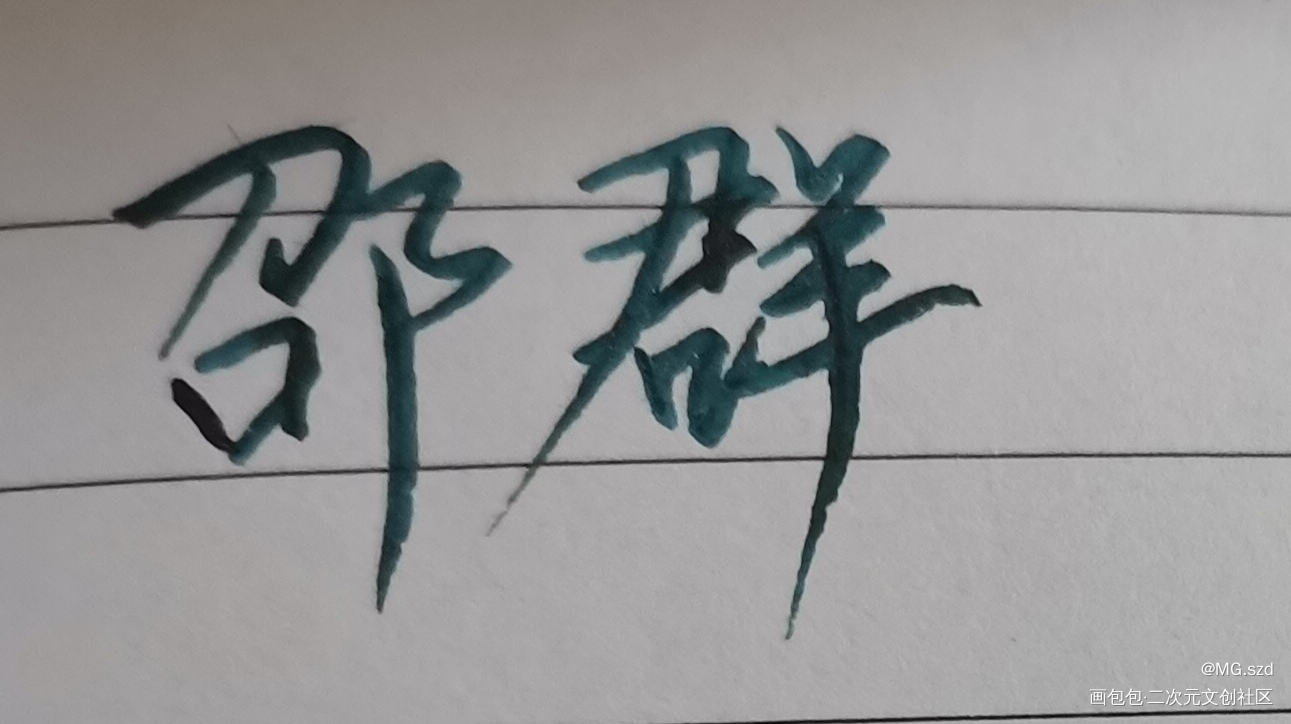 邵群
@MG.szd
画包包·二次元文创社区